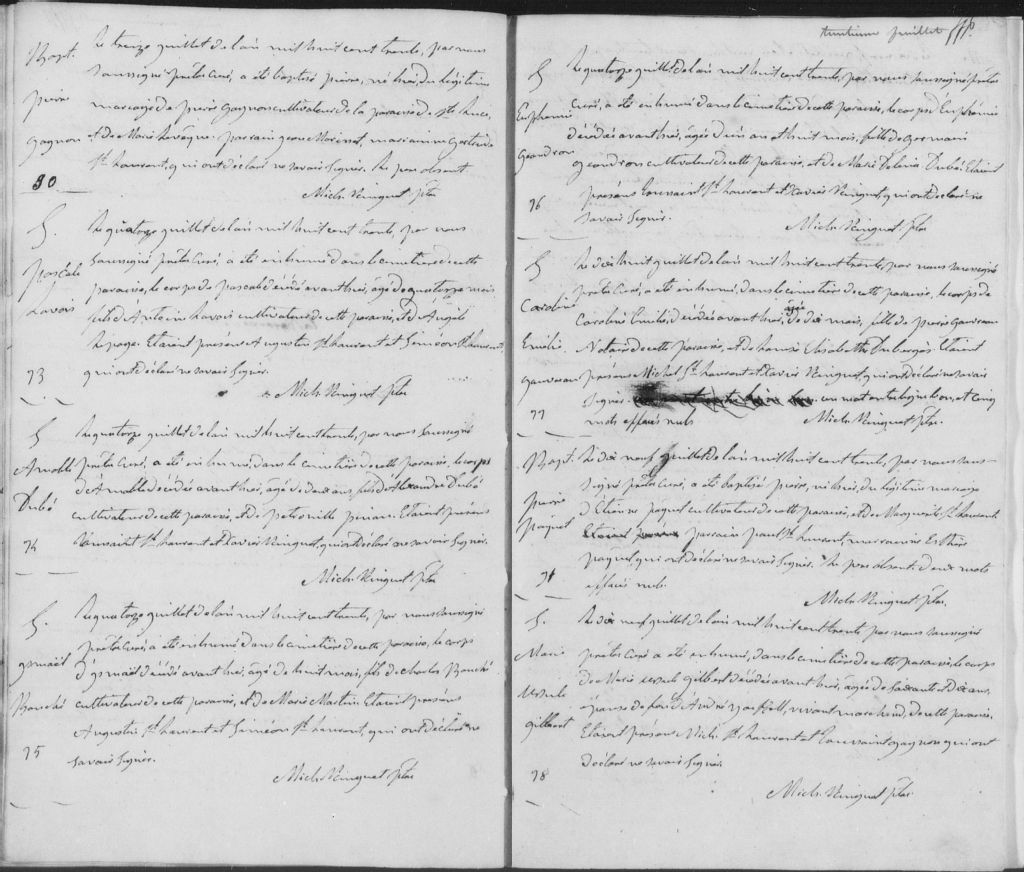 Bapt.
pierre
gagnon
90
Le treize juillet de l'an mil huit cent trente, par nous
soussigné prêtre Curé, a été baptisé pierre, né hier, du légitime
mariage de pierre gagnon cultivateur de la paroisse de Ste Luce,
et de Marie Lavoye: parrain george Morisset, marraine
St Laurent, qui ont déclaré ne savoir Signer. Le père absent
Mich. Ringuet ptre
S.
pascale
Lavois
73
Le quatorze juillet de l'an mil huit cent trente, par nous
soussigné prêtre Curé, a été inhumé dans le cimetière de cette
paroisse, le corps de pascale décédé avant hier, âgé de quatorze mois
fils d'Antoine Lavois cultivateur de cette paroisse, et d'Angèle
Lepage. Étaient présens Augustin St Laurent et Siméon St Laurent,
qui ont déclaré ne savoir Signer.
Mich. Ringuet ptre
S
Arnable
Dubé
74
Le quatorze juillet de l'an mil huit cent trente, par nous Soussigné
prêtre Curé, a été inhumé, dans le cimetière de cette paroisse, le corps
d'Amable décédé avant hier, âgé de deux ans fils d'Alexandre Dubé
cultivateur de cette paroisse, et de petronille pineau. Étaient présens
Toussaint St Laurent et Xavier Ringuet, qui ont déclaré ne savoir Signer.
Mich. Ringuet ptre
S.
gsmaël
Bouché
75
Le quatorze juillet de l'an mil huit cent trente, par nous soussigné
prêtre Curé, a été inhumé dans le cimetière de cette paroisse, le corps
d'gsmaël décédé avant hier, âgé de huit mois, fils de charles Bouché
cultivateur de cette paroisse, et de Marie Martin. Étaient présens
Augustin St Laurent et Siméon St Laurent, qui ont déclaré ne
savoir Signer.
Mich. Ringuet ptre
juillet
S
Euphémie
geandron
76
Le quatorze juillet de l'an mil huit cent trente, par nous soussigné prêtre
Curé, a été inhumé dans le cimetière de cette paroisse, le corps d'Euphémie
décédée avant hier, âgée d'un an et huit mois, fille de germain
geandron cultivateur de cette paroisse, et de Marie Dubé. Étaient
présens Toussaint St Laurent et Xavier Ringuet, qui ont déclaré ne
savoir Signer.
Mich. Ringuet ptre
S
Caroline
Emilie
gauvreau
77
Le dix huit juillet de l'an mil huit cent trente, par nous soussigné
prêtre Curé, a été inhumé, dans le cimetière de cette paroisse, le corps de
Caroline Emilie, décédée avant hier, âgée de dix mois, fille de pierre gauvreau
Notaire de cette paroisse, et de Elisabeth Dubergès. Étaient
présens Michel St Laurent et Xavier Ringuet, qui ont déclaré ne savoir
Signer. un mot en interligne bon, et cinq
mots effacés nuls
Mich. Ringuet ptre.
Bapt.
pierre
paquet
91
Le dix neuf juillet de l'an mil huit cent trente, par nous sous-
signé prêtre Curé, a été baptisé pierre, né hier, du légitime mariage
d'Etienne paquet cultivateur de cette paroisse, et de Marguerite St Laurent.
parrain paul St Laurent, marraine Esther
paquet, qui ont déclaré ne savoir Signer. Le père absent. deux mots
effacés nuls.
Mich. Ringuet ptre.
S.
Marie
Ursule
gilbert
78
Le dix neuf juillet de l'an mil huit cent trente par nous soussigné
prêtre Curé a été inhumé, dans le cimetière de cette paroisse le corps
de Marie Ursule gilbert décédée avant hier, âgée de soixante et dix ans,
épouse de feu André, vivant marchand, de cette paroisse.
Étaient présens Mich. St Laurent et Toussaint gagnon qui ont
déclaré ne savoir Signer.
Mich. Ringuet ptre